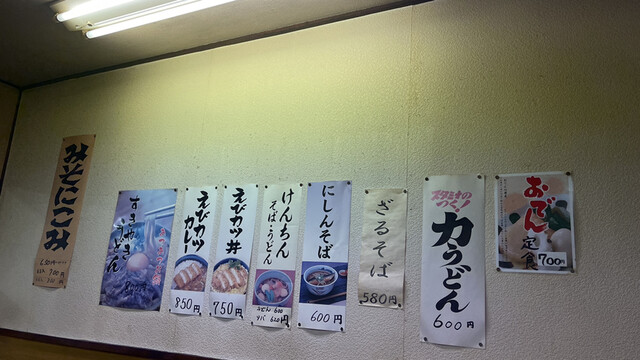 みそにこみ
すきやき
うどん
えびカツ
カレー
850円
えびカツ丼
750円
けんちん
そば・うどん
うどん 600
ソバ 620円
にしんそば
600円
ざるそば
580円
スタミナの
つく!
力うどん
600円
おでん
定食
700円